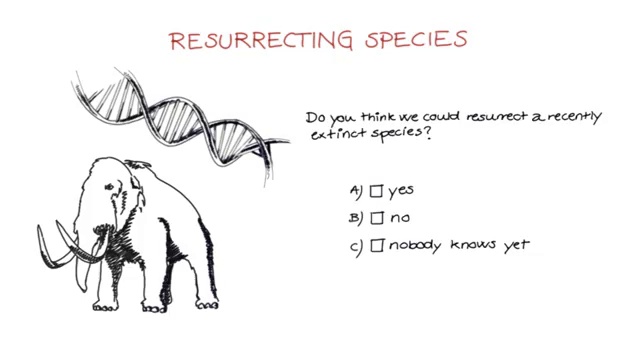 RESURRECTING SPECIES
Do you think we could resurrect a recently
extinct species?
A) yes
B) no
C) nobody knows yet